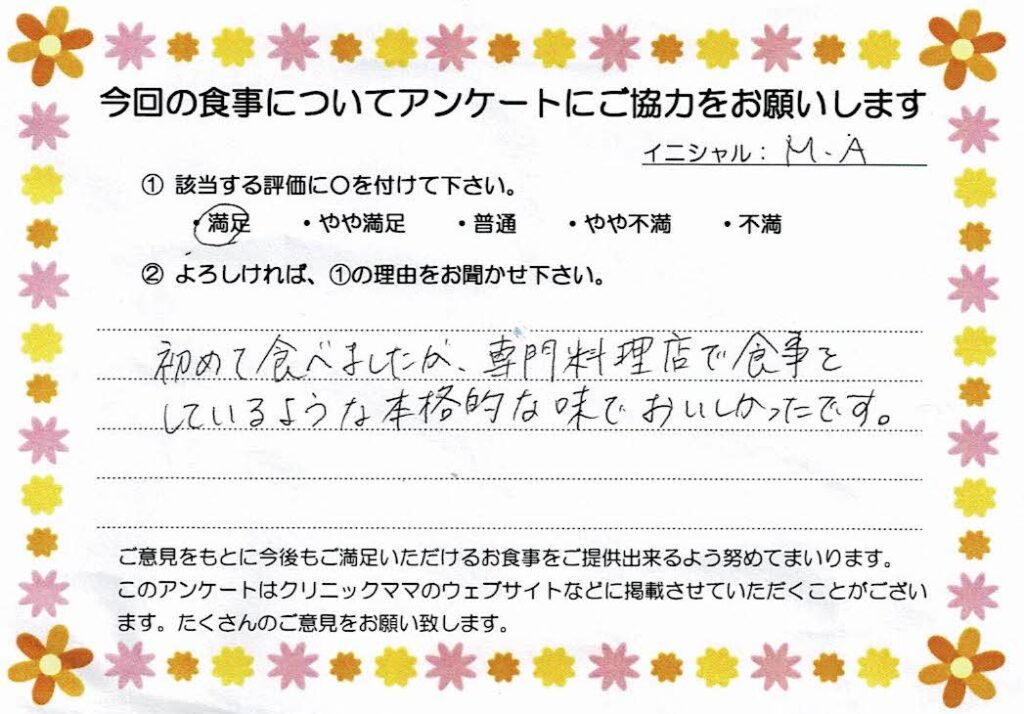 今回の食事についてアンケートにご協力をお願いします
イニシャル： M.A
① 該当する評価に〇を付けて下さい。
・満足　・やや満足　・普通　・やや不満　・不満
② よろしければ、①の理由をお聞かせ下さい。
初めて食べましたが、専門料理店で食事を
しているような本格的な味でおいしかったです。
ご意見をもとに今後もご満足いただけるお食事をご提供出来るよう努めてまいります。
このアンケートはクリニックママのウェブサイトなどに掲載させていただくことがござい
ます。たくさんのご意見をお願い致します。